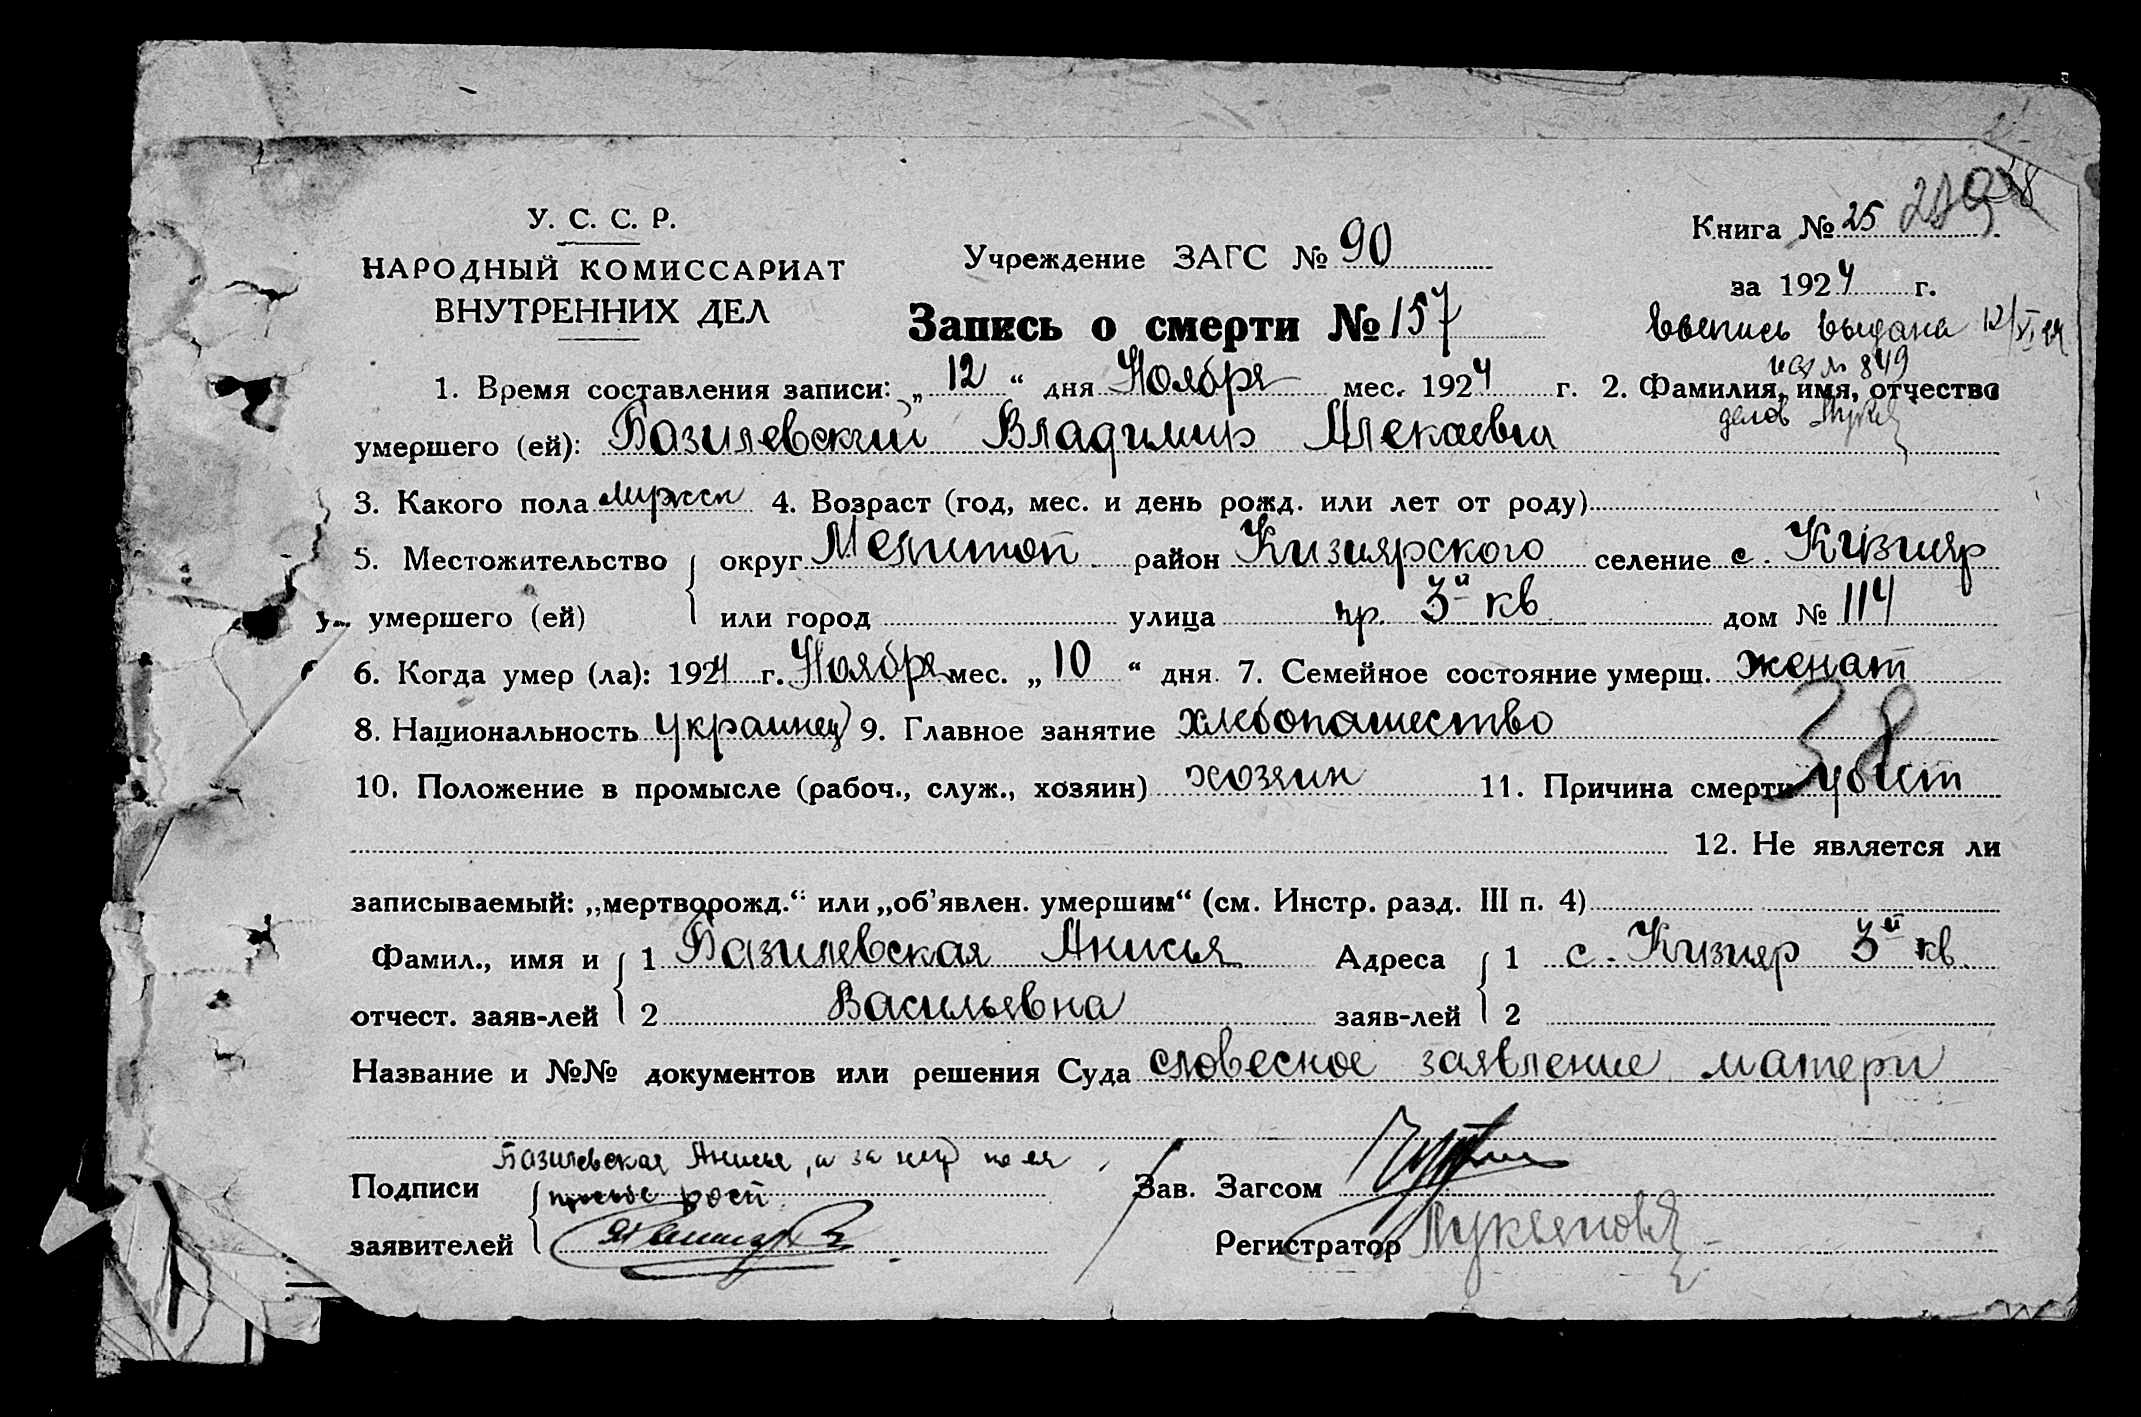 У. С. С. Р.
НАРОДНЫЙ КОМИССАРИАТ
ВНУТРЕННИХ ДЕЛ
Учреждение ЗАГС № 90
Книга № 25
за 1924 г.
Запись о смерти № 157
Выпись выдана 12/XI 24
849
1. Время составления записи: „ 12 “ дня Ноября мес. 1924 г. 2. Фамилия, имя, отчество
умершего (ей): Базилевский Владимир Алексеевич
3. Какого пола мужск 4. Возраст (год, мес. и день рожд. или лет от роду)
5. Местожительство округ Мелитоп район Кизиярского селение с. Кизияр
умершего (ей) или город улица пр. 3й кв дом № 114
6. Когда умер (ла): 1924 г. Ноября мес. „ 10 “ дня. 7. Семейное состояние умерш. женат
8. Национальность украинец 9. Главное занятие хлебопашество
38
10. Положение в промысле (рабоч., служ., хозяин) хозяин 11. Причина смерти убит
12. Не является ли
записываемый: „мертворожд.“ или „об’явлен. умершим“ (см. Инстр. разд. III п. 4)
Фамил., имя и 1 Базилевская Анисья Адреса 1 с. Кизияр 3й кв.
отчест. заяв-лей 2 Васильевна заяв-лей 2
Название и №№ документов или решения Суда словесное заявление матери
Базилевская Анисья, а за нер по ея
Подписи просьбе росп. Зав. Загсом
заявителей Регистратор Лукьянова